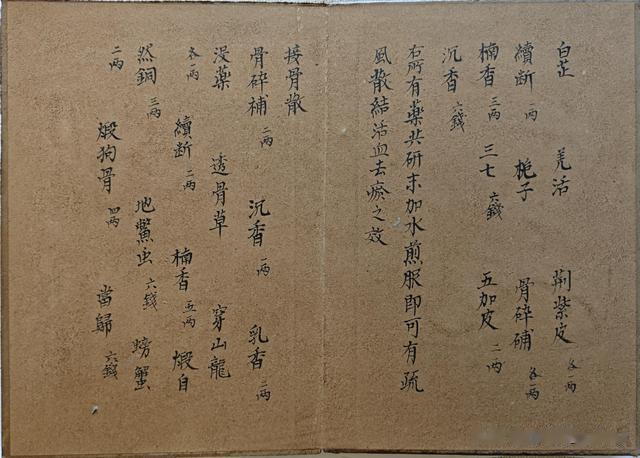 白芷 羌活 荆紫皮 各一两
續断 一两 栀子 骨碎補 各一两
楠香 三两 三七 六錢 五加皮 二两
沉香 六錢
右所有藥共研末加水煎服即可有疏
風散結活血去瘀之效
接骨散
骨碎補 二两 沉香 一两 乳香 二两
浸藥 透骨草 穿山龍
各一两 續断 二两 楠香 五两 煅自
然銅 三两 地鱉虫 六錢 螃蟹
二两 煅狗骨 四两 當歸 六錢